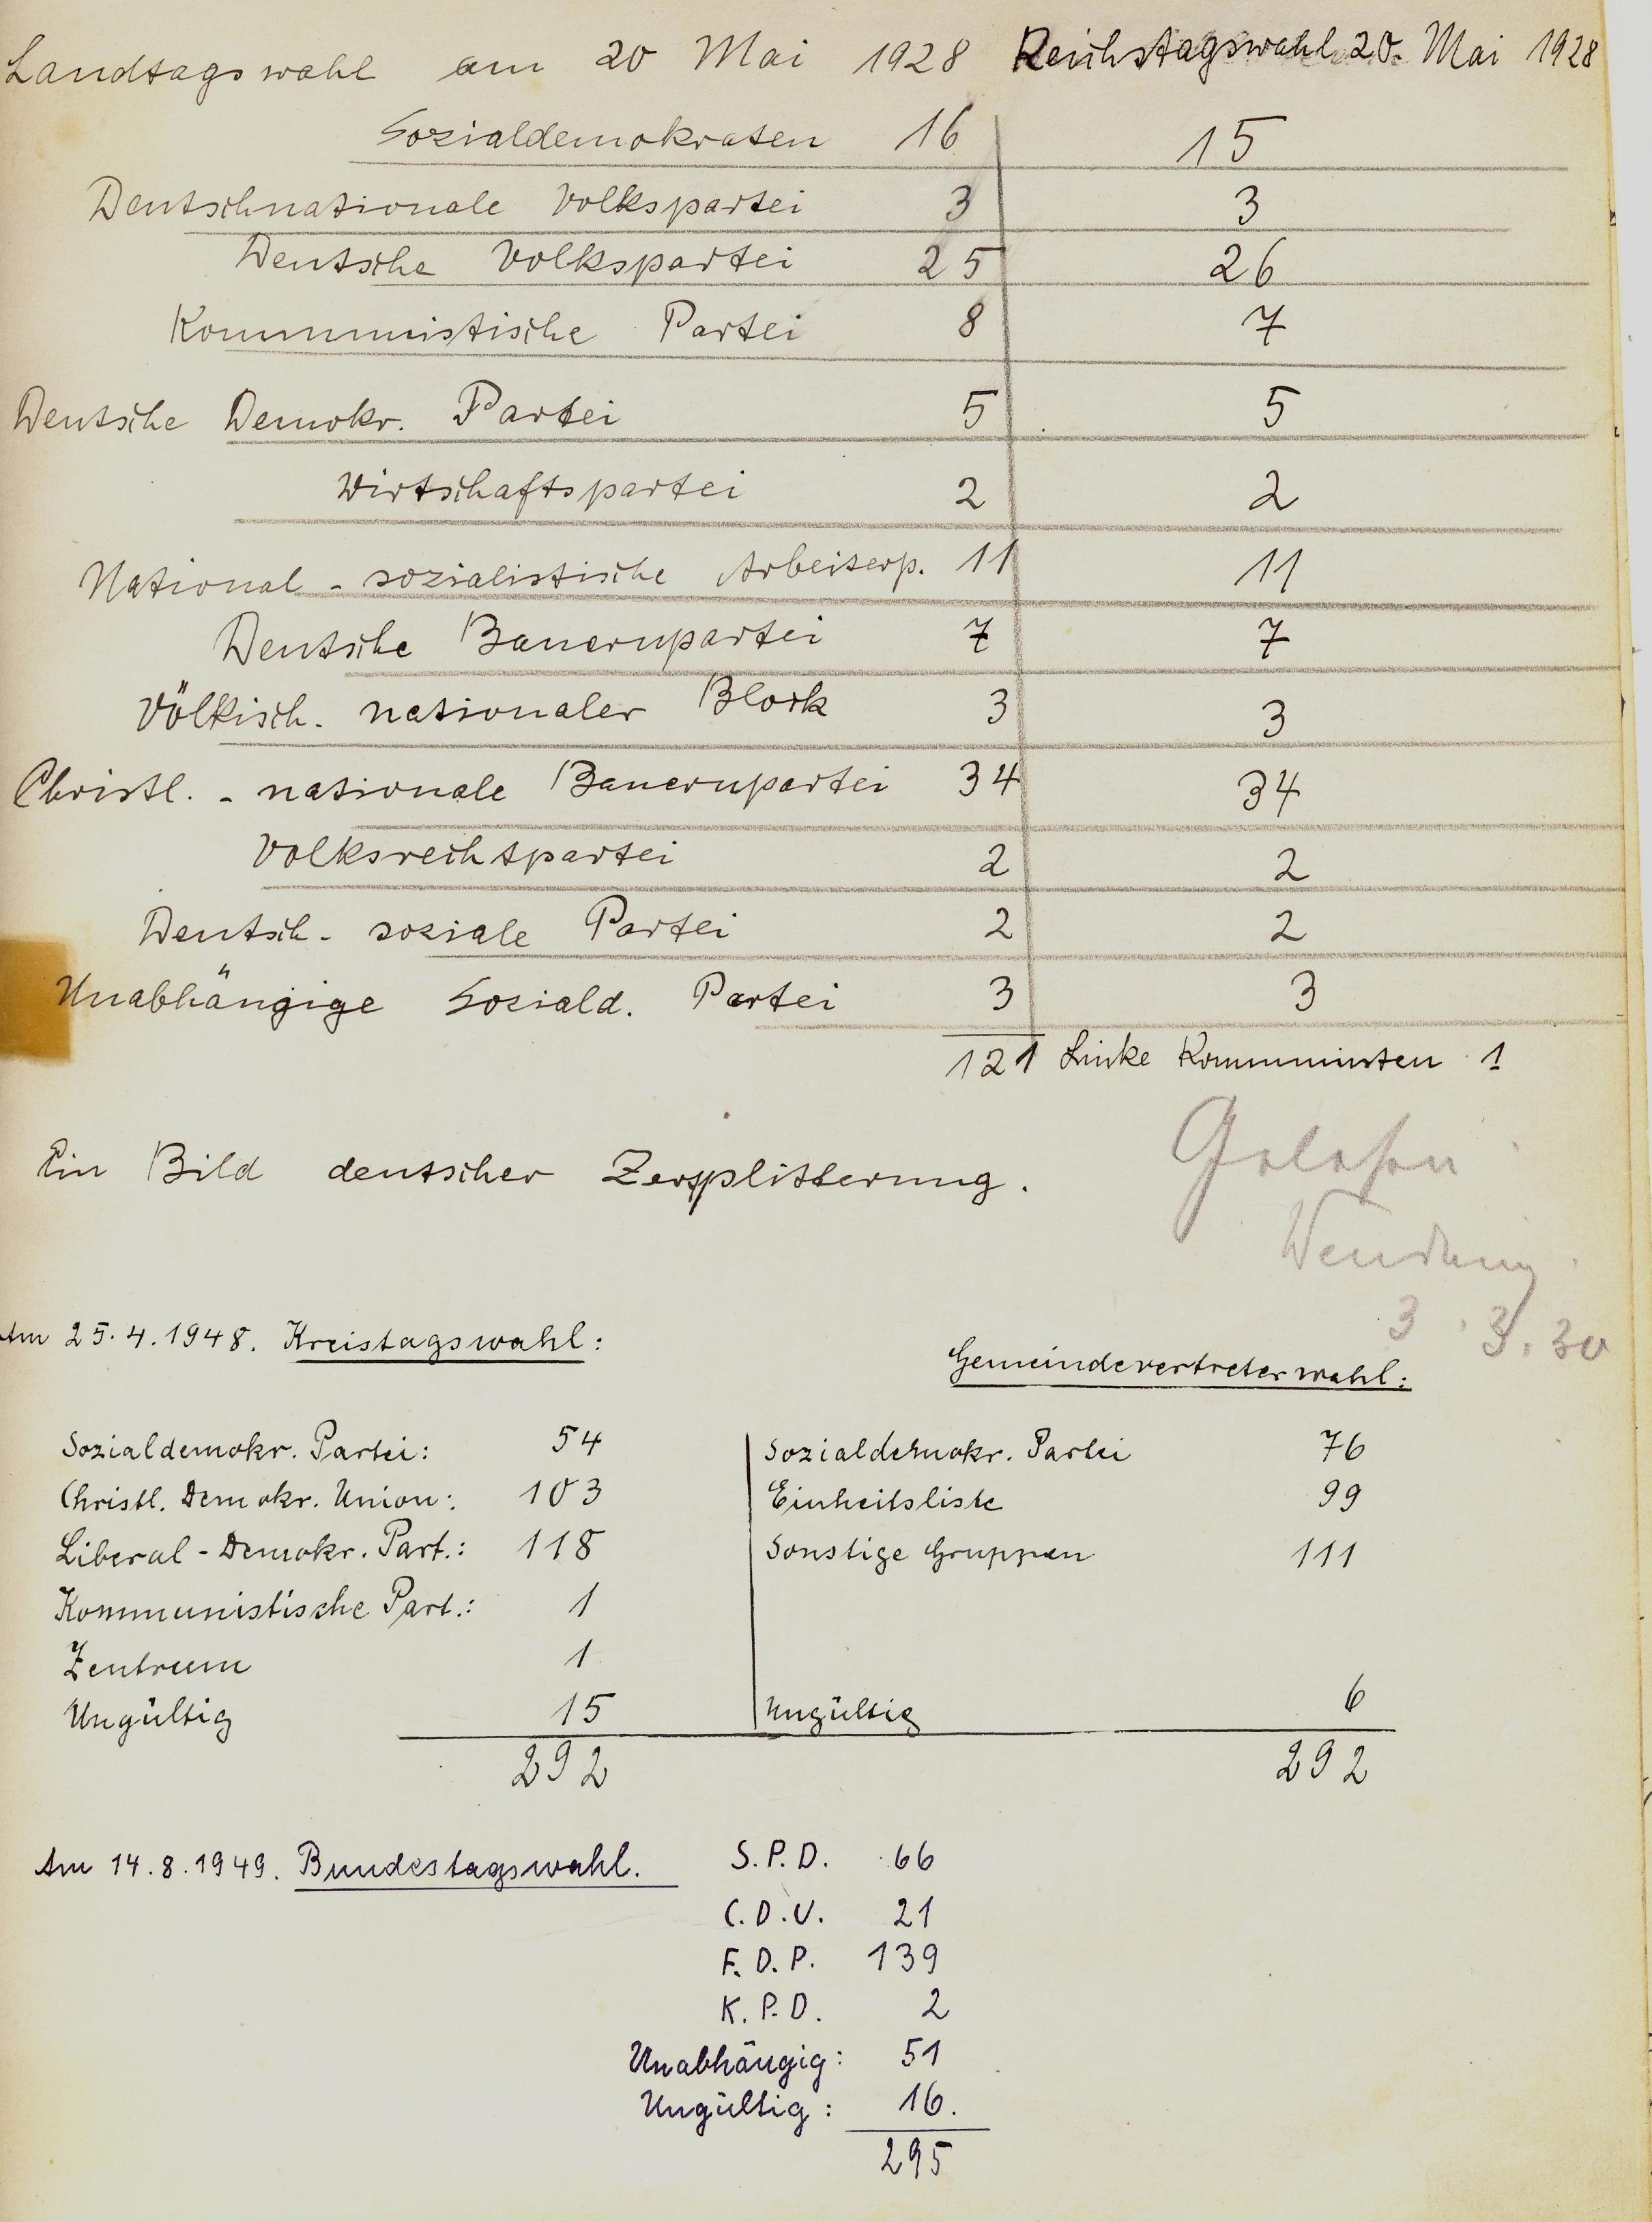 Landtagswahl am 20 Mai 1928 Reichstagswahl 20. Mai 1928
Sozialdemokraten 16 15
Deutschnationale Volkspartei 3 3
Deutsche Volkspartei 25 26
Kommunistische Partei 8 7
Deutsche Demokr. Partei 5 5
Wirtschaftspartei 2 2
National-sozialistische Arbeiterp. 11 11
Deutsche Bauernpartei 7 7
Völkisch-nationaler Block 3 3
Christl.-nationale Bauernpartei 34 34
Volksrechtpartei 2 2
Deutsch-soziale Partei 2 2
Unabhängige Soziald. Partei 3 3
121 Linke Kommunisten 1
Ein Bild deutscher Zersplitterung.
Gelesen
3.3.30
Am 25.4.1948. Kreistagswahl:
Gemeindevertreterwahl:
Sozialdemokr. Partei: 54 Sozialdemokr. Partei 76
Christl. Demokr. Union: 103 Einheitsliste 99
Liberal-Demokr. Part.: 118 Sonstige Gruppen 111
Kommunistische Part.: 1
Zentrum 1
Ungültig 15 Ungültig 6
292 292
Am 14.8.1949. Bundestagswahl. S.P.D. 66
C.D.U. 21
F.D.P. 139
K.P.D. 2
Unabhängig: 51
Ungültig: 16.
295